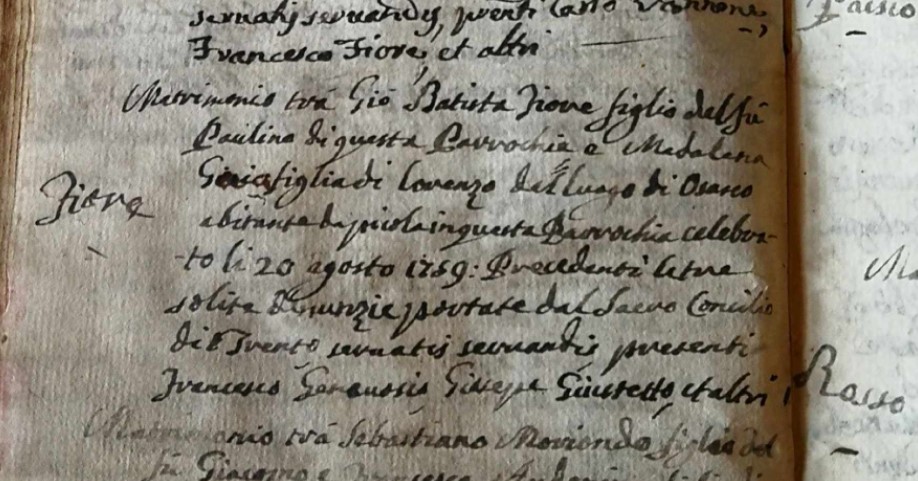 servatis servandis, p̃renti Carlo Vannone,
Francesco Fiore, et altri
Matrimonio trà Giõ Batista Fiore figlio del fù
Paulino di questa Parrochia e Madalena
figlia di Lorenzo del luogo di Osasco
abitante da picola in questa Parrochia celebra-
to li 20 agosto 1759: Precedenti le tre
solite Denunzie portate dal Sacro Concilio
di Trento servatis servandis presenti
Francesco Giuseppe Giusretto, et altri
Matrimonio trà Sebastiano Moriondo figlio del
fù Giacomo e
Fiore
Rosso